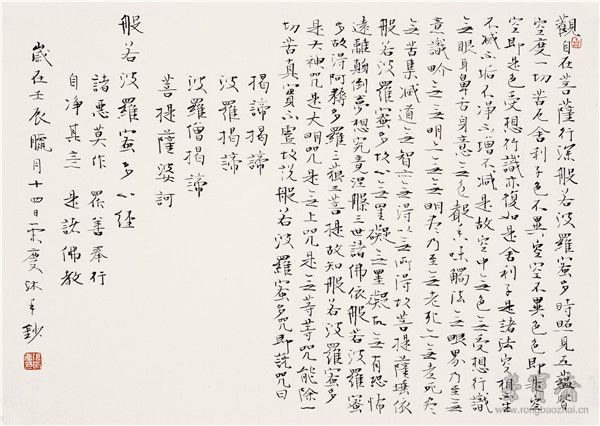 觀自在菩薩行深般若波羅蜜多時照見五蘊皆
空度一切苦厄舍利子色不異空空不異色色即是空
空即是色受想行識亦復如是舍利子是諸法空相不生
不滅不垢不淨不增不減是故空中无色无受想行識
无眼耳鼻舌身意无色聲香味觸法无眼界乃至无
意識界无无明亦无无明盡乃至无老死亦无老死盡
无苦集滅道无智亦无得以无所得故菩提薩埵依
般若波羅蜜多故心无罣礙无罣礙故无有恐怖
遠離顛倒夢想究竟涅槃三世諸佛依般若波羅蜜
多故得阿耨多羅三藐三菩提故知般若波羅蜜多
是大神咒是大明咒是无上咒是无等等咒能除一
切苦真實不虛故說般若波羅蜜多咒即說咒曰
揭諦揭諦
波羅揭諦
波羅僧揭諦
菩提薩婆訶
般若波羅蜜多心經
諸惡莫作 眾善奉行
自淨其意 是諸佛教
歲在壬辰臘月十四日榮慶沐手鈔
榮寶齋
www.rongbaozhai.cn